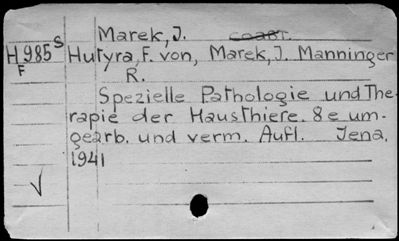 Marek, J. соавт.
H 985 S Hutyra, F. von, Marek, J. Manninger
F R.
Spezielle Pathologie und The-
rapie der Hausthiere. 8e um-
gearb. und verm. Aufl. Jena,
1941